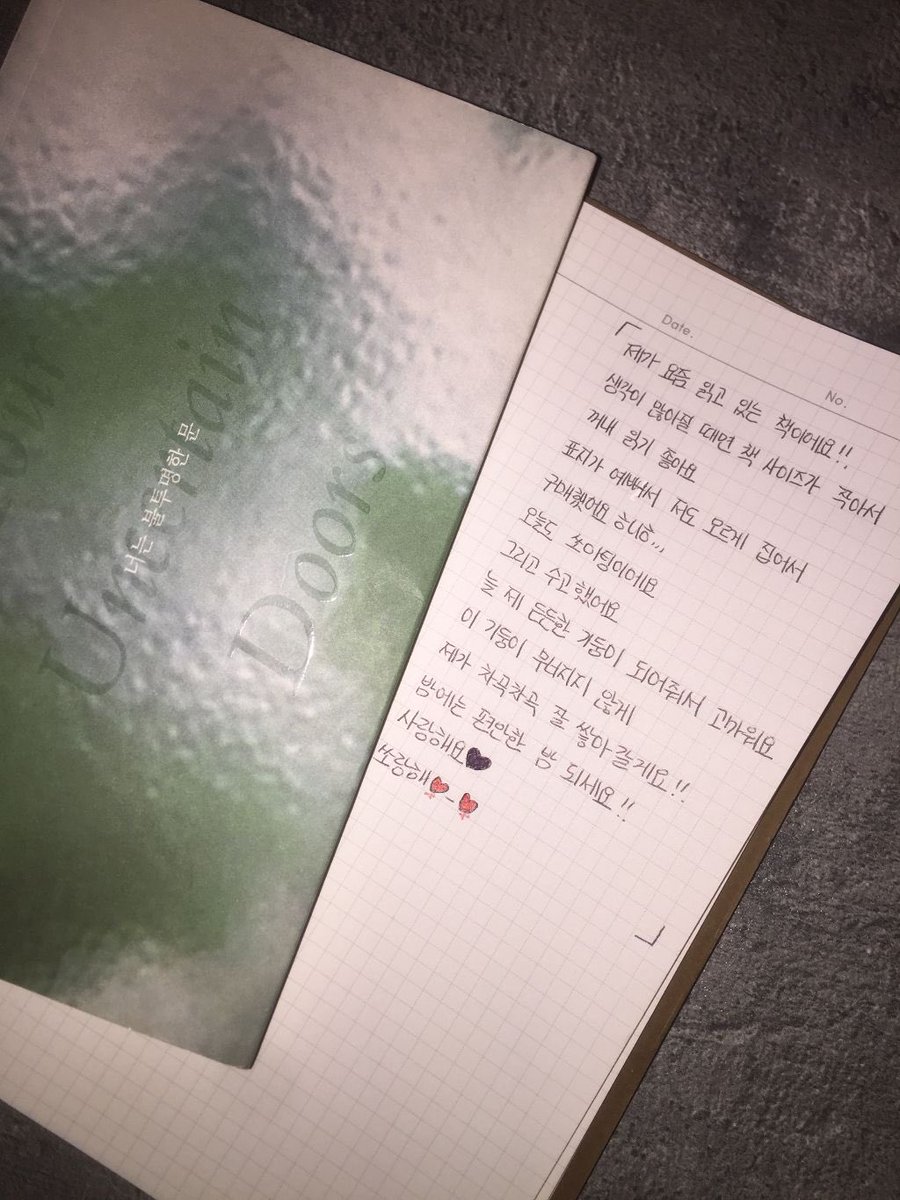 너는 불투명한 문
Uncertain
Doors
Date.
No.
「
제가 요즘 읽고 있는 책이에요!!
생각이 많아질 때면 책 사이즈가 작아서
꺼내 읽기 좋아요
표지가 예뻐서 저도 모르게 집어서
구매했어요 히히...
오늘도 쏘아팅이에요
그리고 수고했어요
늘 제 든든한 기둥이 되어줘서 고마워요
이 기둥이 무너지지 않게
제가 차곡차곡 잘 쌓아 갈게요!!
밤에는 편안한 밤 되세요!!
사랑해요🖤
쏘랑해❣-❣
」